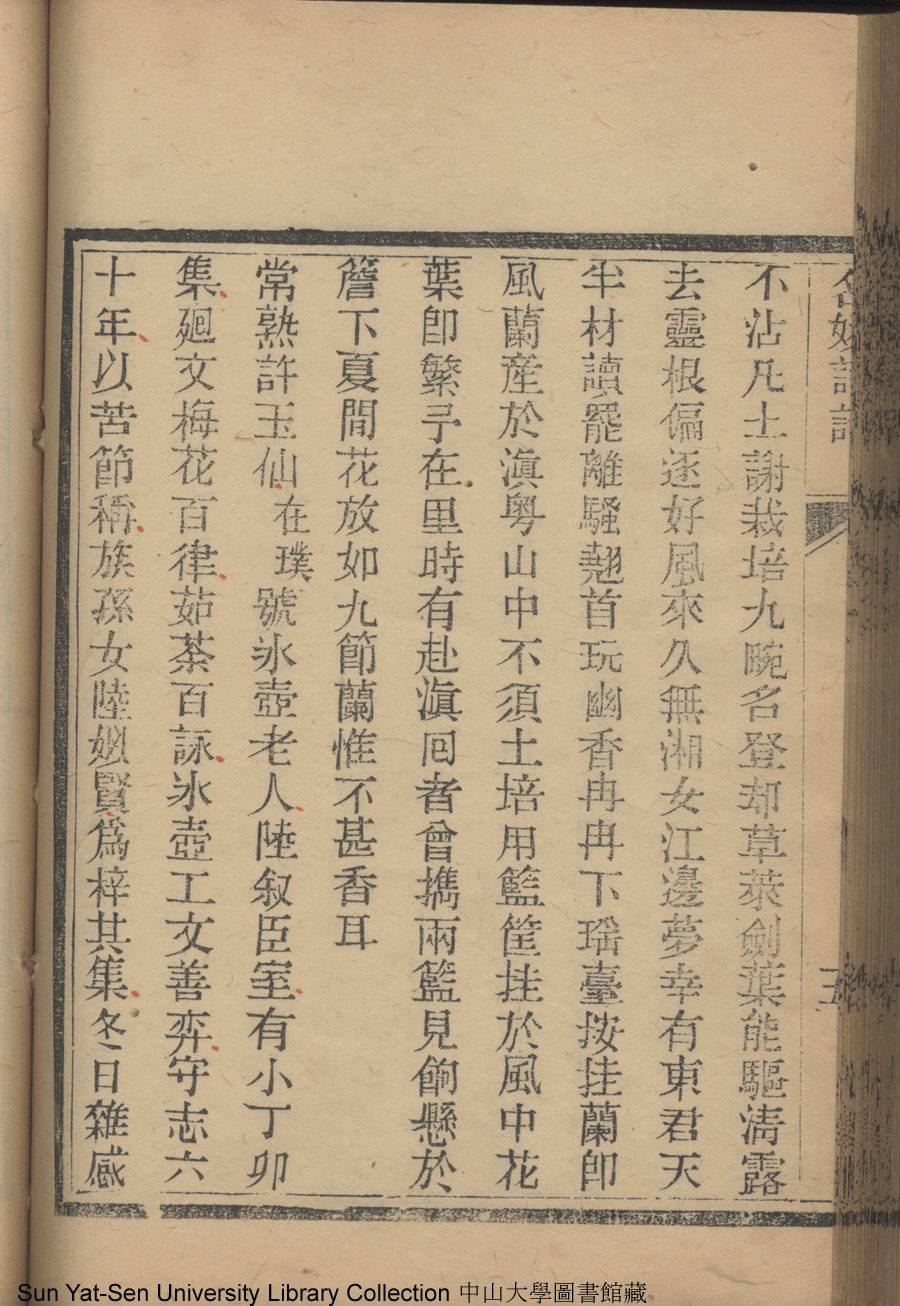 名媛詩話
五
不沾凡土謝栽培九畹名登却草萊劍葉能驅淸露
去靈根偏逐好風來久無湘女江邊夢幸有東君天
半材讀罷離騷翹首玩幽香冉冉下瑶臺按挂蘭卽
風蘭產於滇粤山中不須土培用籃筐挂於風中花
葉卽繁予在里時有赴滇囘者曾攜兩籃見餉懸於
簷下夏間花放如九節蘭惟不甚香耳
常熟許玉仙在璞號氷壺老人陸叙臣室有小丁卯
集廻文梅花百律茹荼百詠氷壺工文善弈守志六
十年以苦節稱族孫女陸姒賢爲梓其集冬日雜感
Sun Yat-Sen University Library Collection 中山大學圖書館藏